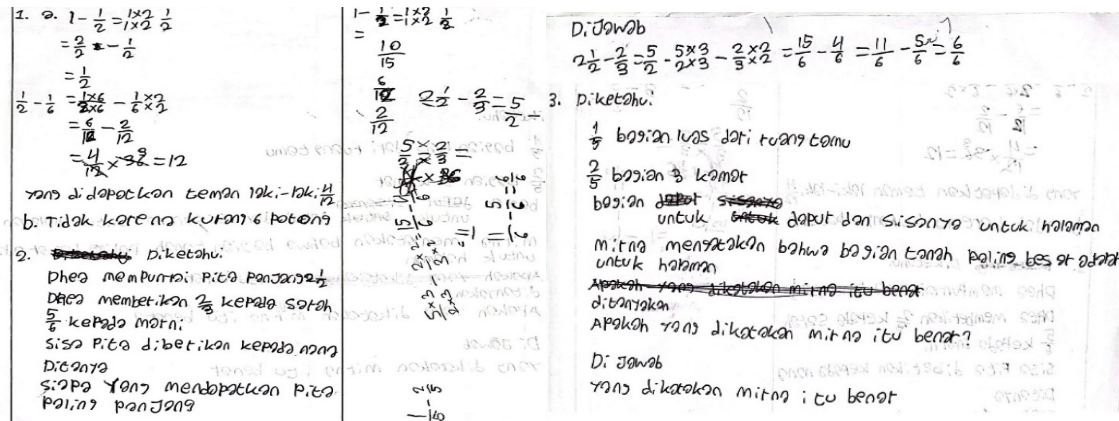 1. a. 1 - 1/2 = 1×2/1×2 1/2
= 2/2 - 1/2
= 1/2
1/2 - 1/6 = 1×6/2×6 - 1×2/6×2
= 6/12 - 2/12
= 4/12 × 36 = 12
yang didapatkan teman laki-laki 4/12
b. Tidak karena kurang 6 potong
2. Diketahui:
Dhea mempunyai pita panjang 2 1/2
Dhea memberikan 2/3 kepada sarah
5/6 kepada marni
sisa pita diberikan kepada nana
Ditanya
siapa yang mendapatkan pita
paling panjang
1 - 1/2 = 1×2/1×2 1/2
=
10/15
6/12
2/12
2 1/2 - 2/3 = 5/2 -
5/3 × 2/3 =
Dijawab
2 1/2 - 2/3 = 5/2 - 5×3/2×3 - 2×2/3×2 = 15/6 - 4/6 = 11/6 - 5/6 = 6/6
3. Diketahui:
1/5 bagian luas dari ruang tamu
2/5 bagian 3 kamar
bagian dapur sisanya
untuk untuk dapur dan sisanya untuk halaman
mirna mengatakan bahwa bagian tanah paling besar adalah
untuk halaman
Apakah yang dikatakan mirna itu benar
ditanyakan
Apakah yang dikatakan mirna itu benar?
Di jawab
yang dikatakan mirna itu benar